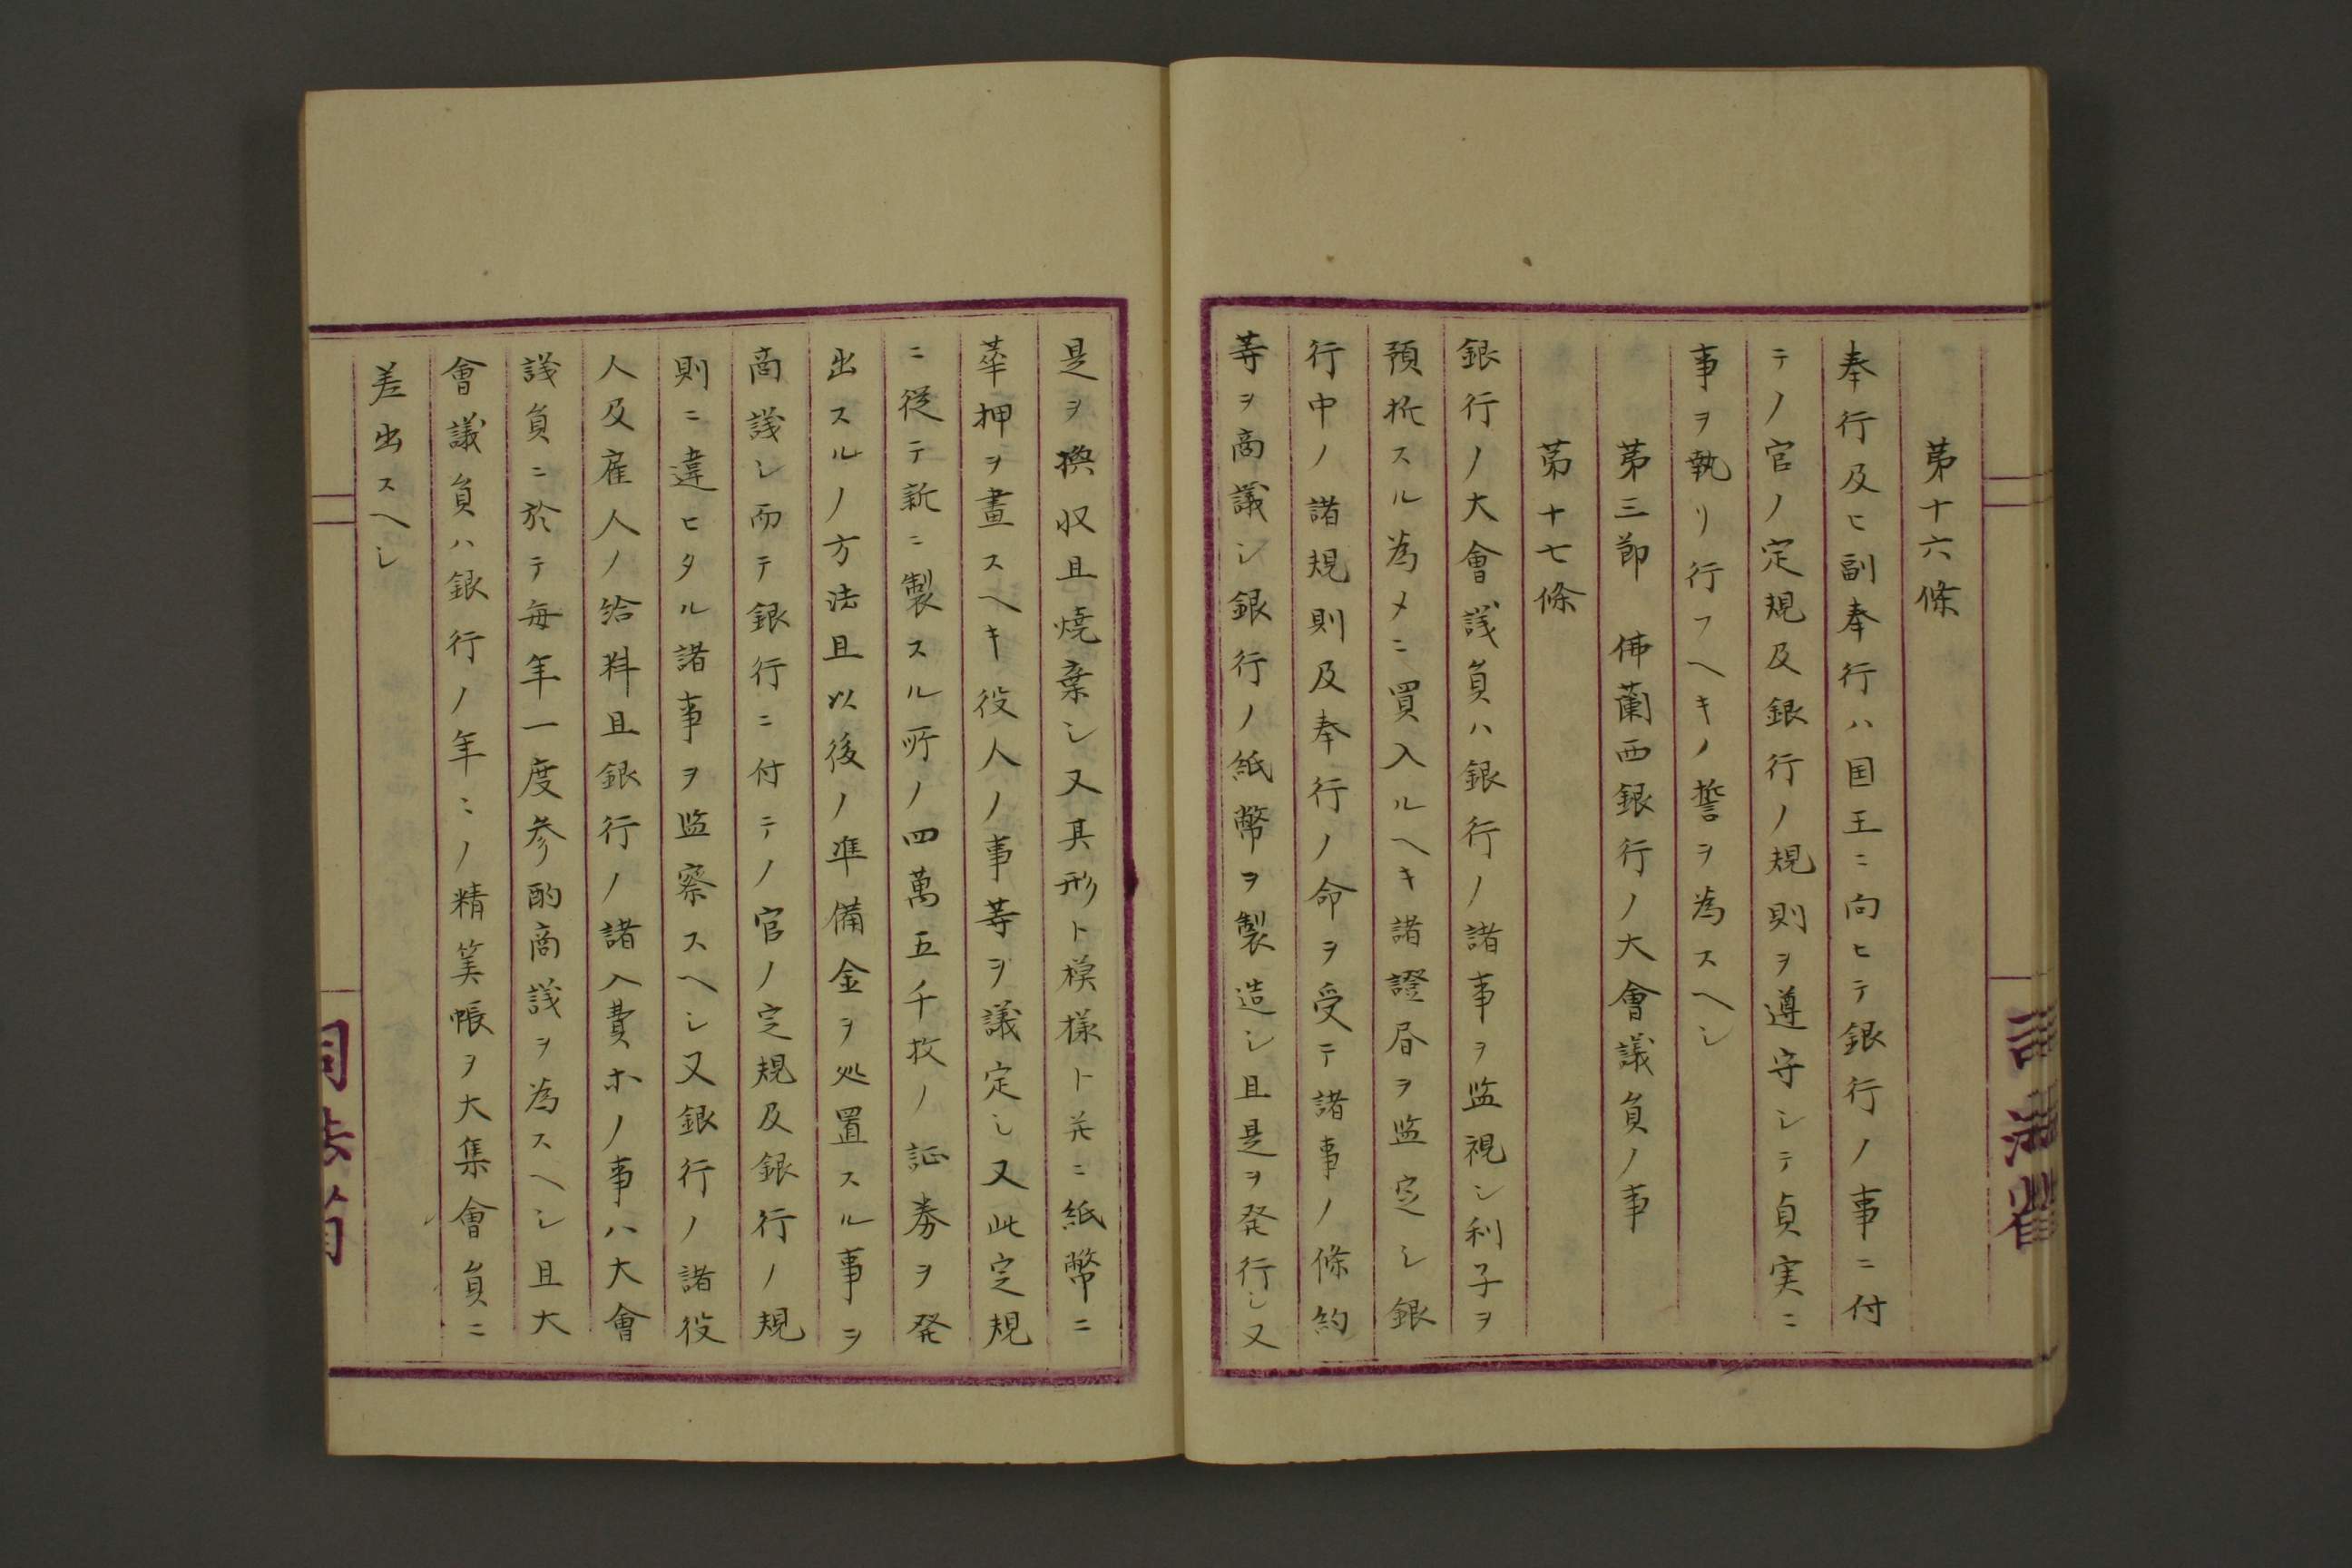 第十六條
奉行及ヒ副奉行ハ国王ニ向ヒテ銀行ノ事ニ付
テノ官ノ定規及銀行ノ規則ヲ遵守シテ貞実ニ
事ヲ執リ行フヘキノ誓ヲ為スヘシ
第三節 佛蘭西銀行ノ大會議負ノ事
第十七條
銀行ノ大會議負ハ銀行ノ諸事ヲ监視シ利子ヲ
預托スル為メニ買入ルヘキ諸證昏ヲ监定シ銀
行中ノ諸規則及奉行ノ命ヲ受テ諸事ノ條約
等ヲ商議シ銀行ノ紙幣ヲ製造シ且是ヲ発行シ又
是ヲ換収且焼棄シ又其形ト模様ト并ニ紙幣ニ
華押ヲ畫スヘキ役人ノ事等ヲ議定シ又此定規
ニ従テ新ニ製スル所ノ四萬五千枚ノ証券ヲ発
出スルノ方法且以後ノ準備金ヲ処置スル事ヲ
商議シ而テ銀行ニ付テノ官ノ定規及銀行ノ規
則ニ違ヒタル諸事ヲ监察スヘシ又銀行ノ諸役
人及雇人ノ給料且銀行ノ諸入費ホノ事ハ大會
議負ニ於テ毎年一度参酌商議ヲ為スヘシ且大
會議負ハ銀行ノ年〻ノ精筭帳ヲ大集會負ニ
差出スヘシ
司法省